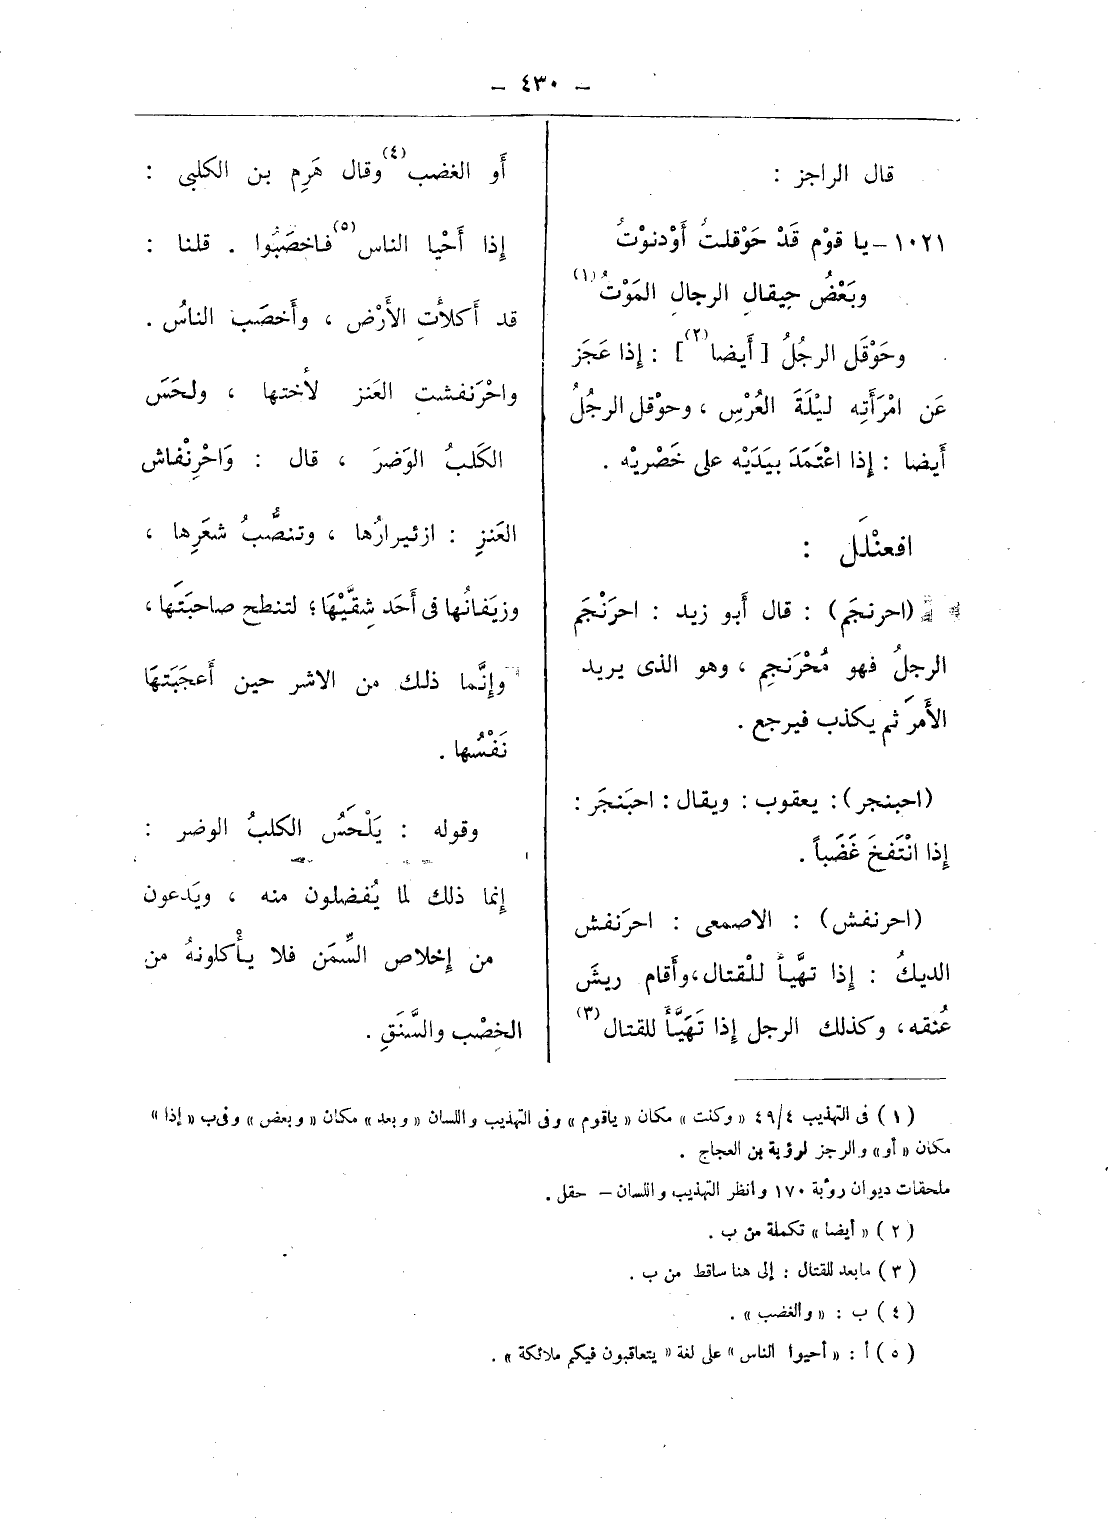 – ٤٣٠ –
قال الراجز :
١٠٢١ – يا قوْم قَدْ حَوْقلتُ أَوْدنوْتُ
وبَعْضُ حِيقالِ الرجالِ المَوْتُ(١)
وحَوْقَل الرجُلُ [ أَيضا(٢) ] : إذا عَجَز
عَن امْرَأَتِه ليْلَةَ العُرْسِ ، وحوْقل الرجُلُ
أَيضا : إذا اعْتَمَدَ بيَدَيْه على خَصْريْه .
افعنْلَل :
* (احرنجَم) : قال أَبو زيد : احرَنْجَم
الرجلُ فهو مُحْرَنجِم ، وهو الذى يريد
الأَمرَ ثم يكذب فيرجع .
(احبنجر) : يعقوب : ويقال : احبَنجَر :
إذا انْتَفخَ غَضَباً .
(احرنفش) : الاصمعى : احرَنفش
الديكُ : إذا تهيَّأَ للْقتال ، وأَقام ريشَ
عُنقه ، وكذلك الرجل إذا تَهَيَّأَ للقتال(٣)
أَو الغضب(٤) وقال هَرِم بن الكلبى :
إذا أَحْيا الناس(٥) فاخصَبُوا . قلنا :
قد أَكلأَتِ الأَرْض ، وأَخصَب الناسُ .
واحْرَنفشت العَنز لأُختها ، ولحَسَ
الكَلبُ الوَضرَ ، قال : وَاحْرِنْفاش
العَنزِ : ازئيرارُها ، وتنصُّبُ شعَرِها ،
وزيَفانُها فى أَحَد شِقَّيْهَا ؛ لتنطح صاحبَتَها ،
وإنَّما ذلك من الاشر حين أَعجَبَتهَا
نَفْسُها .
وقوله : يَلْحَسُ الكلبُ الوضر :
إنما ذلك لما يُفضلون منه ، ويَدعون
من إخلاص السِّمَن فلا يأْكلونهُ من
الخِصْب والسَّنَقِ .
(١) فى التهذيب ٤/٤٩ « وكنت » مكان « ياقوم » وفى التهذيب واللسان « وبعد » مكان « وبعض » وفى ب « إذا »
مكان « أو » والرجز لرؤبة بن العجاج .
ملحقات ديوان رؤبة ١٧٠ وانظر التهذيب واللسان – حقل .
(٢) « أيضا » تكملة من ب .
(٣) مابعد للقتال : إلى هنا ساقط من ب .
(٤) ب : « والغضب » .
(٥) أ : « أحيوا الناس » على لغة « يتعاقبون فيكم ملائكة » .